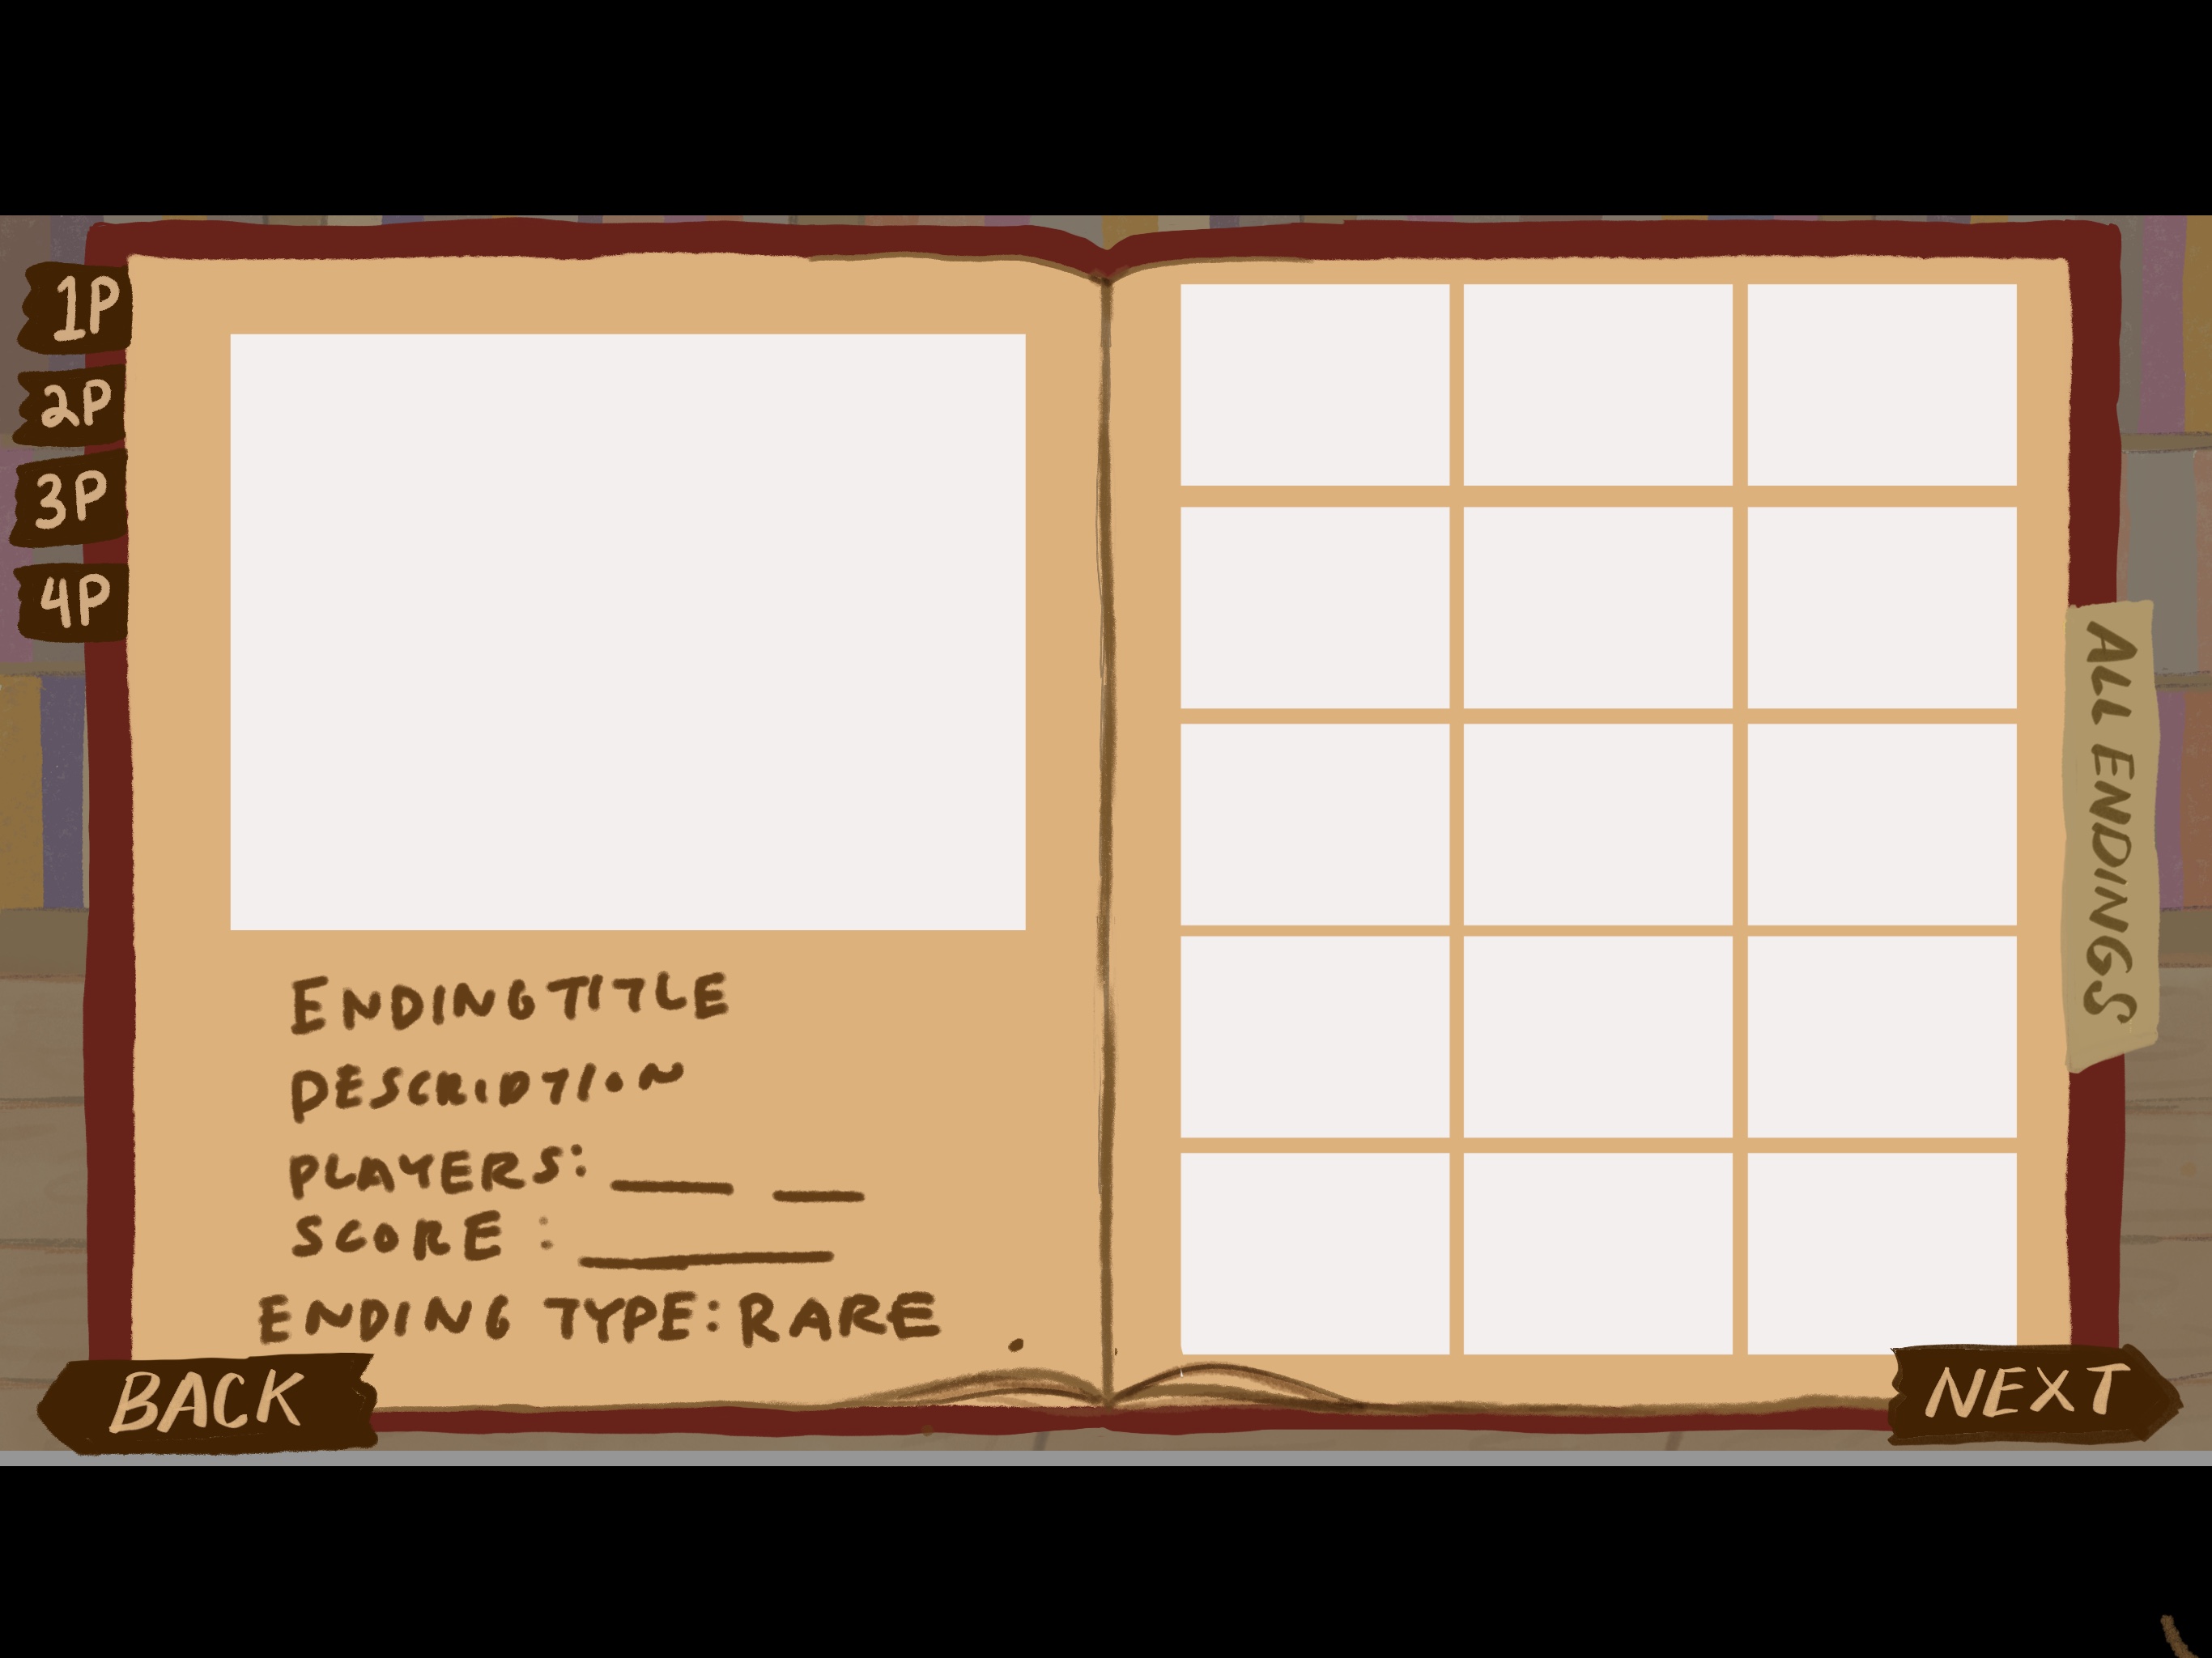 1P
2P
3P
4P
ENDING TITLE
DESCRIPTION
PLAYERS: ____ ___
SCORE : ________
ENDING TYPE: RARE
ALL ENDINGS
BACK
NEXT